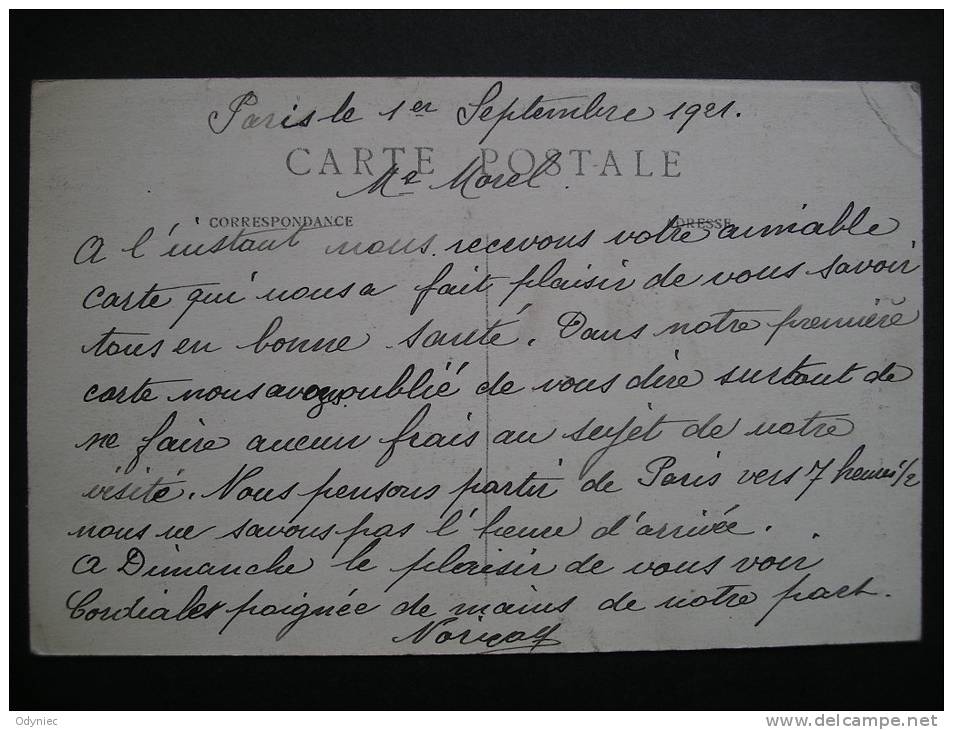 Paris le 1er Septembre 1921.
CARTE POSTALE
Mr Morel.
CORRESPONDANCE ADRESSE
A l'instant nous recevons votre aimable
carte qui nous a fait plaisir de vous savoir
tous en bonne santé. Dans notre première
carte nous avons oublié de vous dire surtout de
ne faire aucun frais au sujet de notre
visite. Nous pensons partir de Paris vers 7 heures 1/2
nous ne savons pas l'heure d'arrivée.
A Dimanche le plaisir de vous voir
Cordiales poignée de mains de notre part.
Odyniec
www.delcampe.net